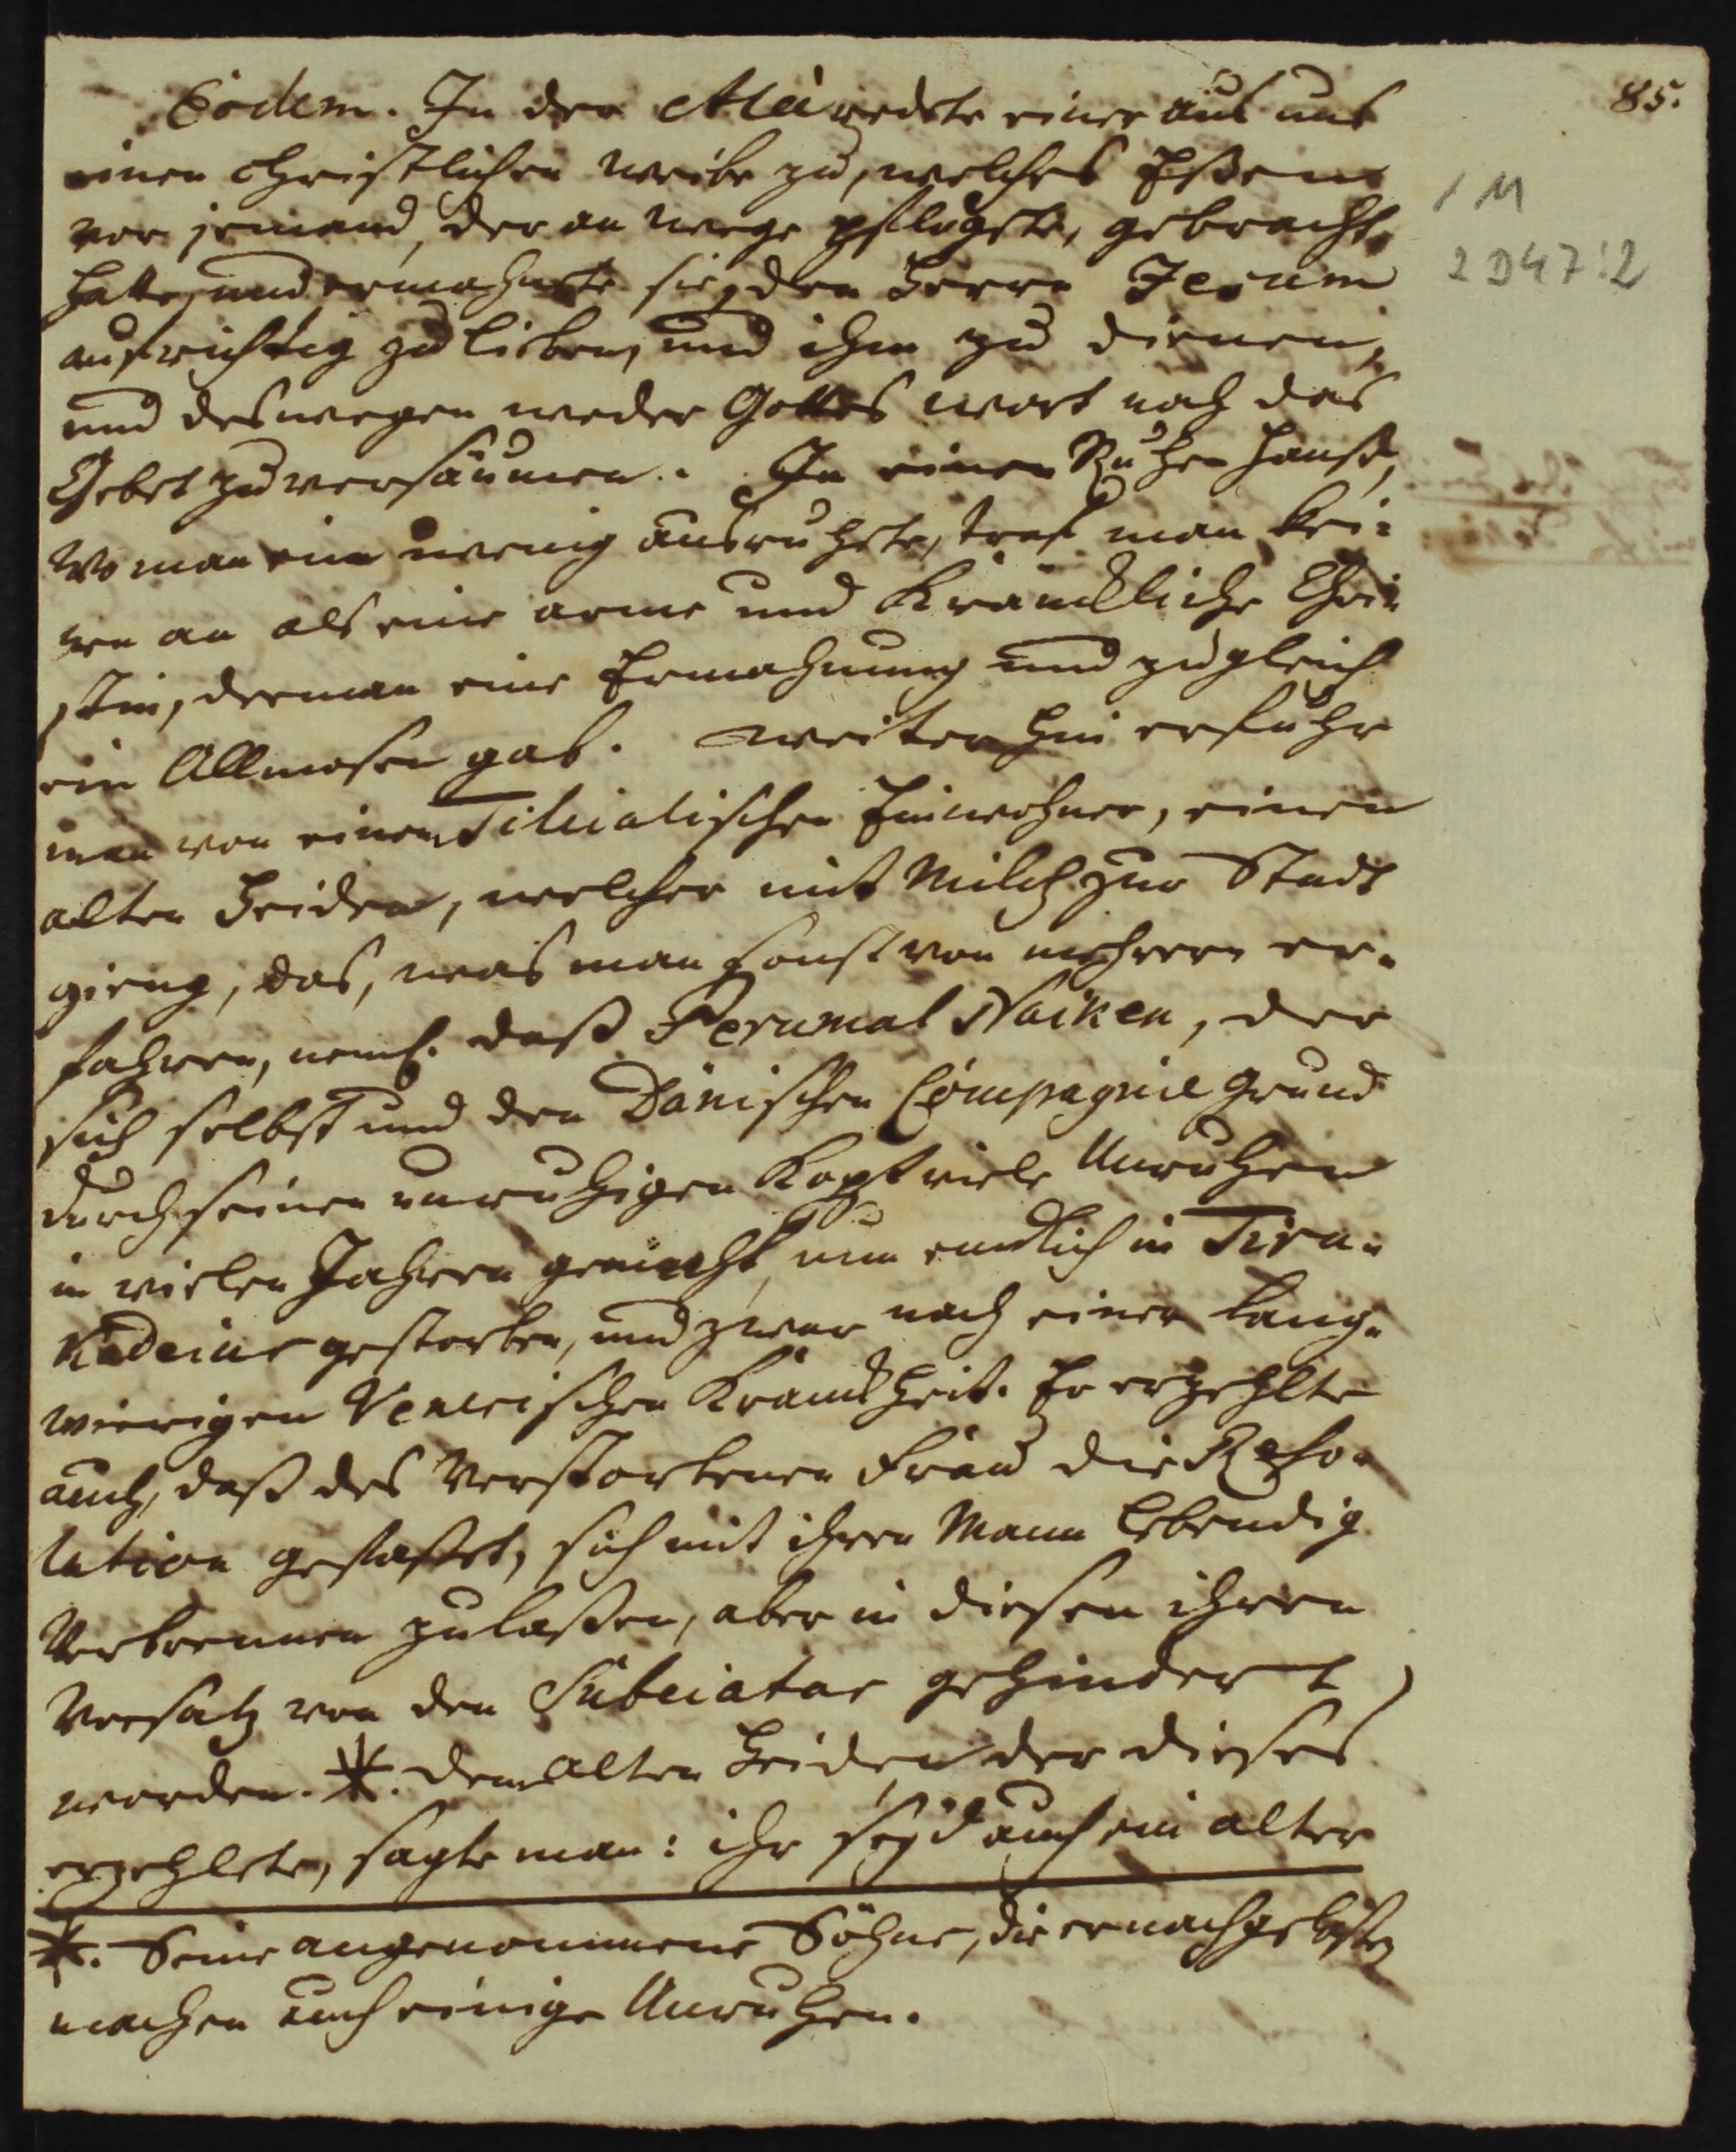 85.
Eodem. In der Alee redete einer aus uns
einen christlichen Weibe zu, welches Eßen
vor jemand, der an Wege pflügete, gebracht
hatte, und ermahnete sie, den Herrn Jesum
aufrichtig zu lieben, und ihm zu dienen,
und deswegen weder Gottes Wort noch das
Gebet zu versäumen. In einen Ruhe Hauße,
wo man ein wenig ausruhete, traf man kei=
nen an als eine arme und Kräncklliche Chri=
stin, der man eine Ermahnung und zugleich
ein Allmosen gab. Weiter hin erfuhr
man von einem Tilleialischen Einwohner, einen
alten Heiden, welcher mit Milch zur Stadt
gieng, das, was man sonst von mehrern er=
fahren, neml. daß Perumal Naiken, der
sich selbst und den Dänischen Compagnie Grund
durch seinen unruhigen Kopf viele Unruhen
in vielen Jahren gemacht, nun endlich in Tiru=
Kadeiur gestorben, und zwar nach einer lang=
wierigen Venerischen Kranckheit. Er erzehlte
auch, daß des Verstorbenen Frau die Reso=
lution gefaßet, sich mit ihren Mann lebendig
Verbrennen zu laßen, aber in diesen ihren
Vorsatz von den Subeiatar gehindert
worden. *. Dem alten Heiden der dieses
erzehlete, sagte man: ihr seyd auch ein alter
*. Seine angenommene Söhne, die er nachgelaßen
machen auch einige Unruhen.
1 M
2 D47:2